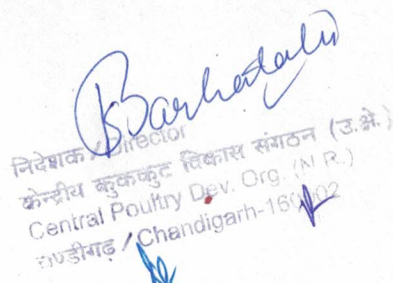 निदेशक / Director
केन्द्रीय कुक्कुट विकास संगठन (उ.क्षे.)
Central Poultry Dev. Org. (N.R.)
चण्डीगढ़ / Chandigarh-160002